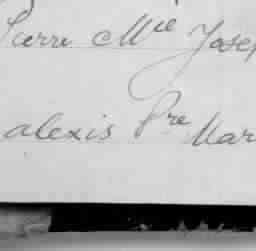 Pierre Mie Josep
alexis Pre Mar